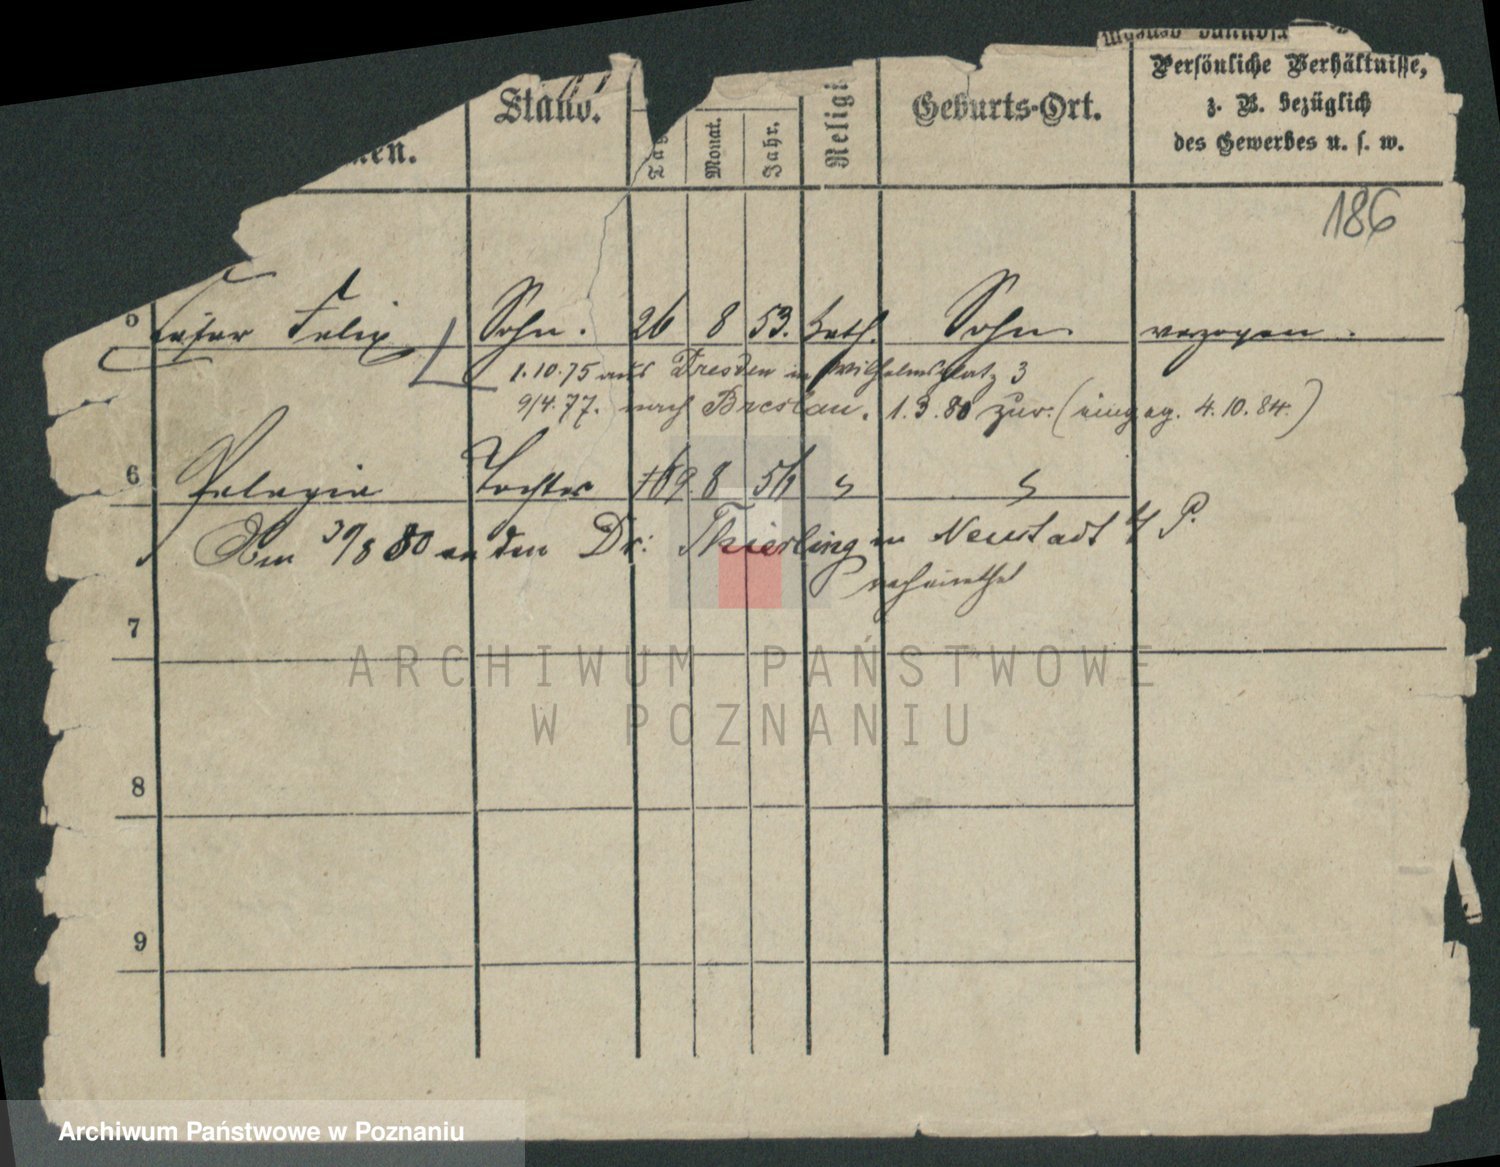 Persönliche Verhältnisse,
z. B. bezüglich
des Gewerbes u. s. w.
Stand.
Tag
Monat.
Jahr.
Religi
Geburts-Ort.
men.
186
5 Felix Sohn. 26 8 53. kath. verzogen.
1.10.75 aus Dresden in Wilhelmsplatz 3
9/4.77. nach Breslau. 1.3.80 zur. (eingeg. 4.10.84.)
6 Pelagia Tochter 8 56
Am 30/8 80 an den Dr: Thierling in Neustadt b/ P.
verheirathet
7
8
9
ARCHIWUM PAŃSTWOWE
W POZNANIU
Archiwum Państwowe w Poznaniu